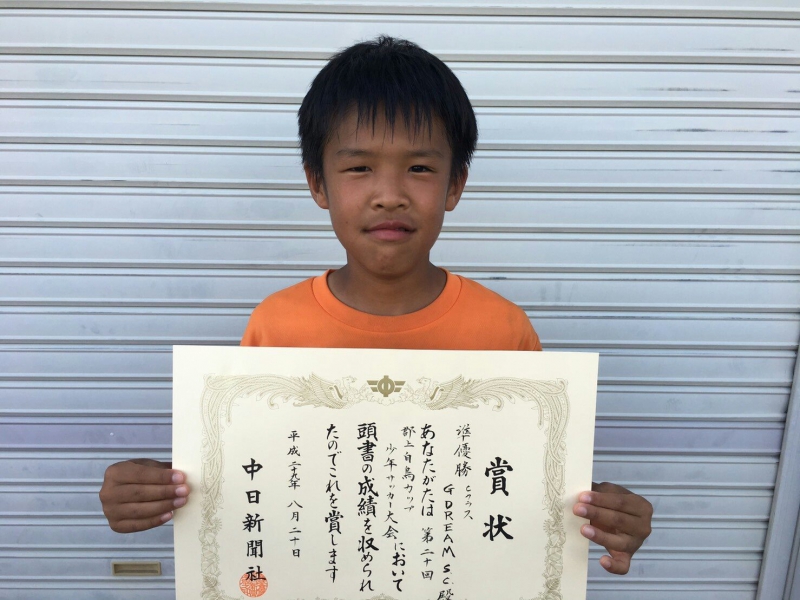 賞状
準優勝 Cクラス
GDREAM S.C.殿
あなたがたは 第二十回
郡上白鳥カップ
少年サッカー大会において
頭書の成績を収められ
たのでこれを賞します
平成二十九年 八月二十日
中日新聞社